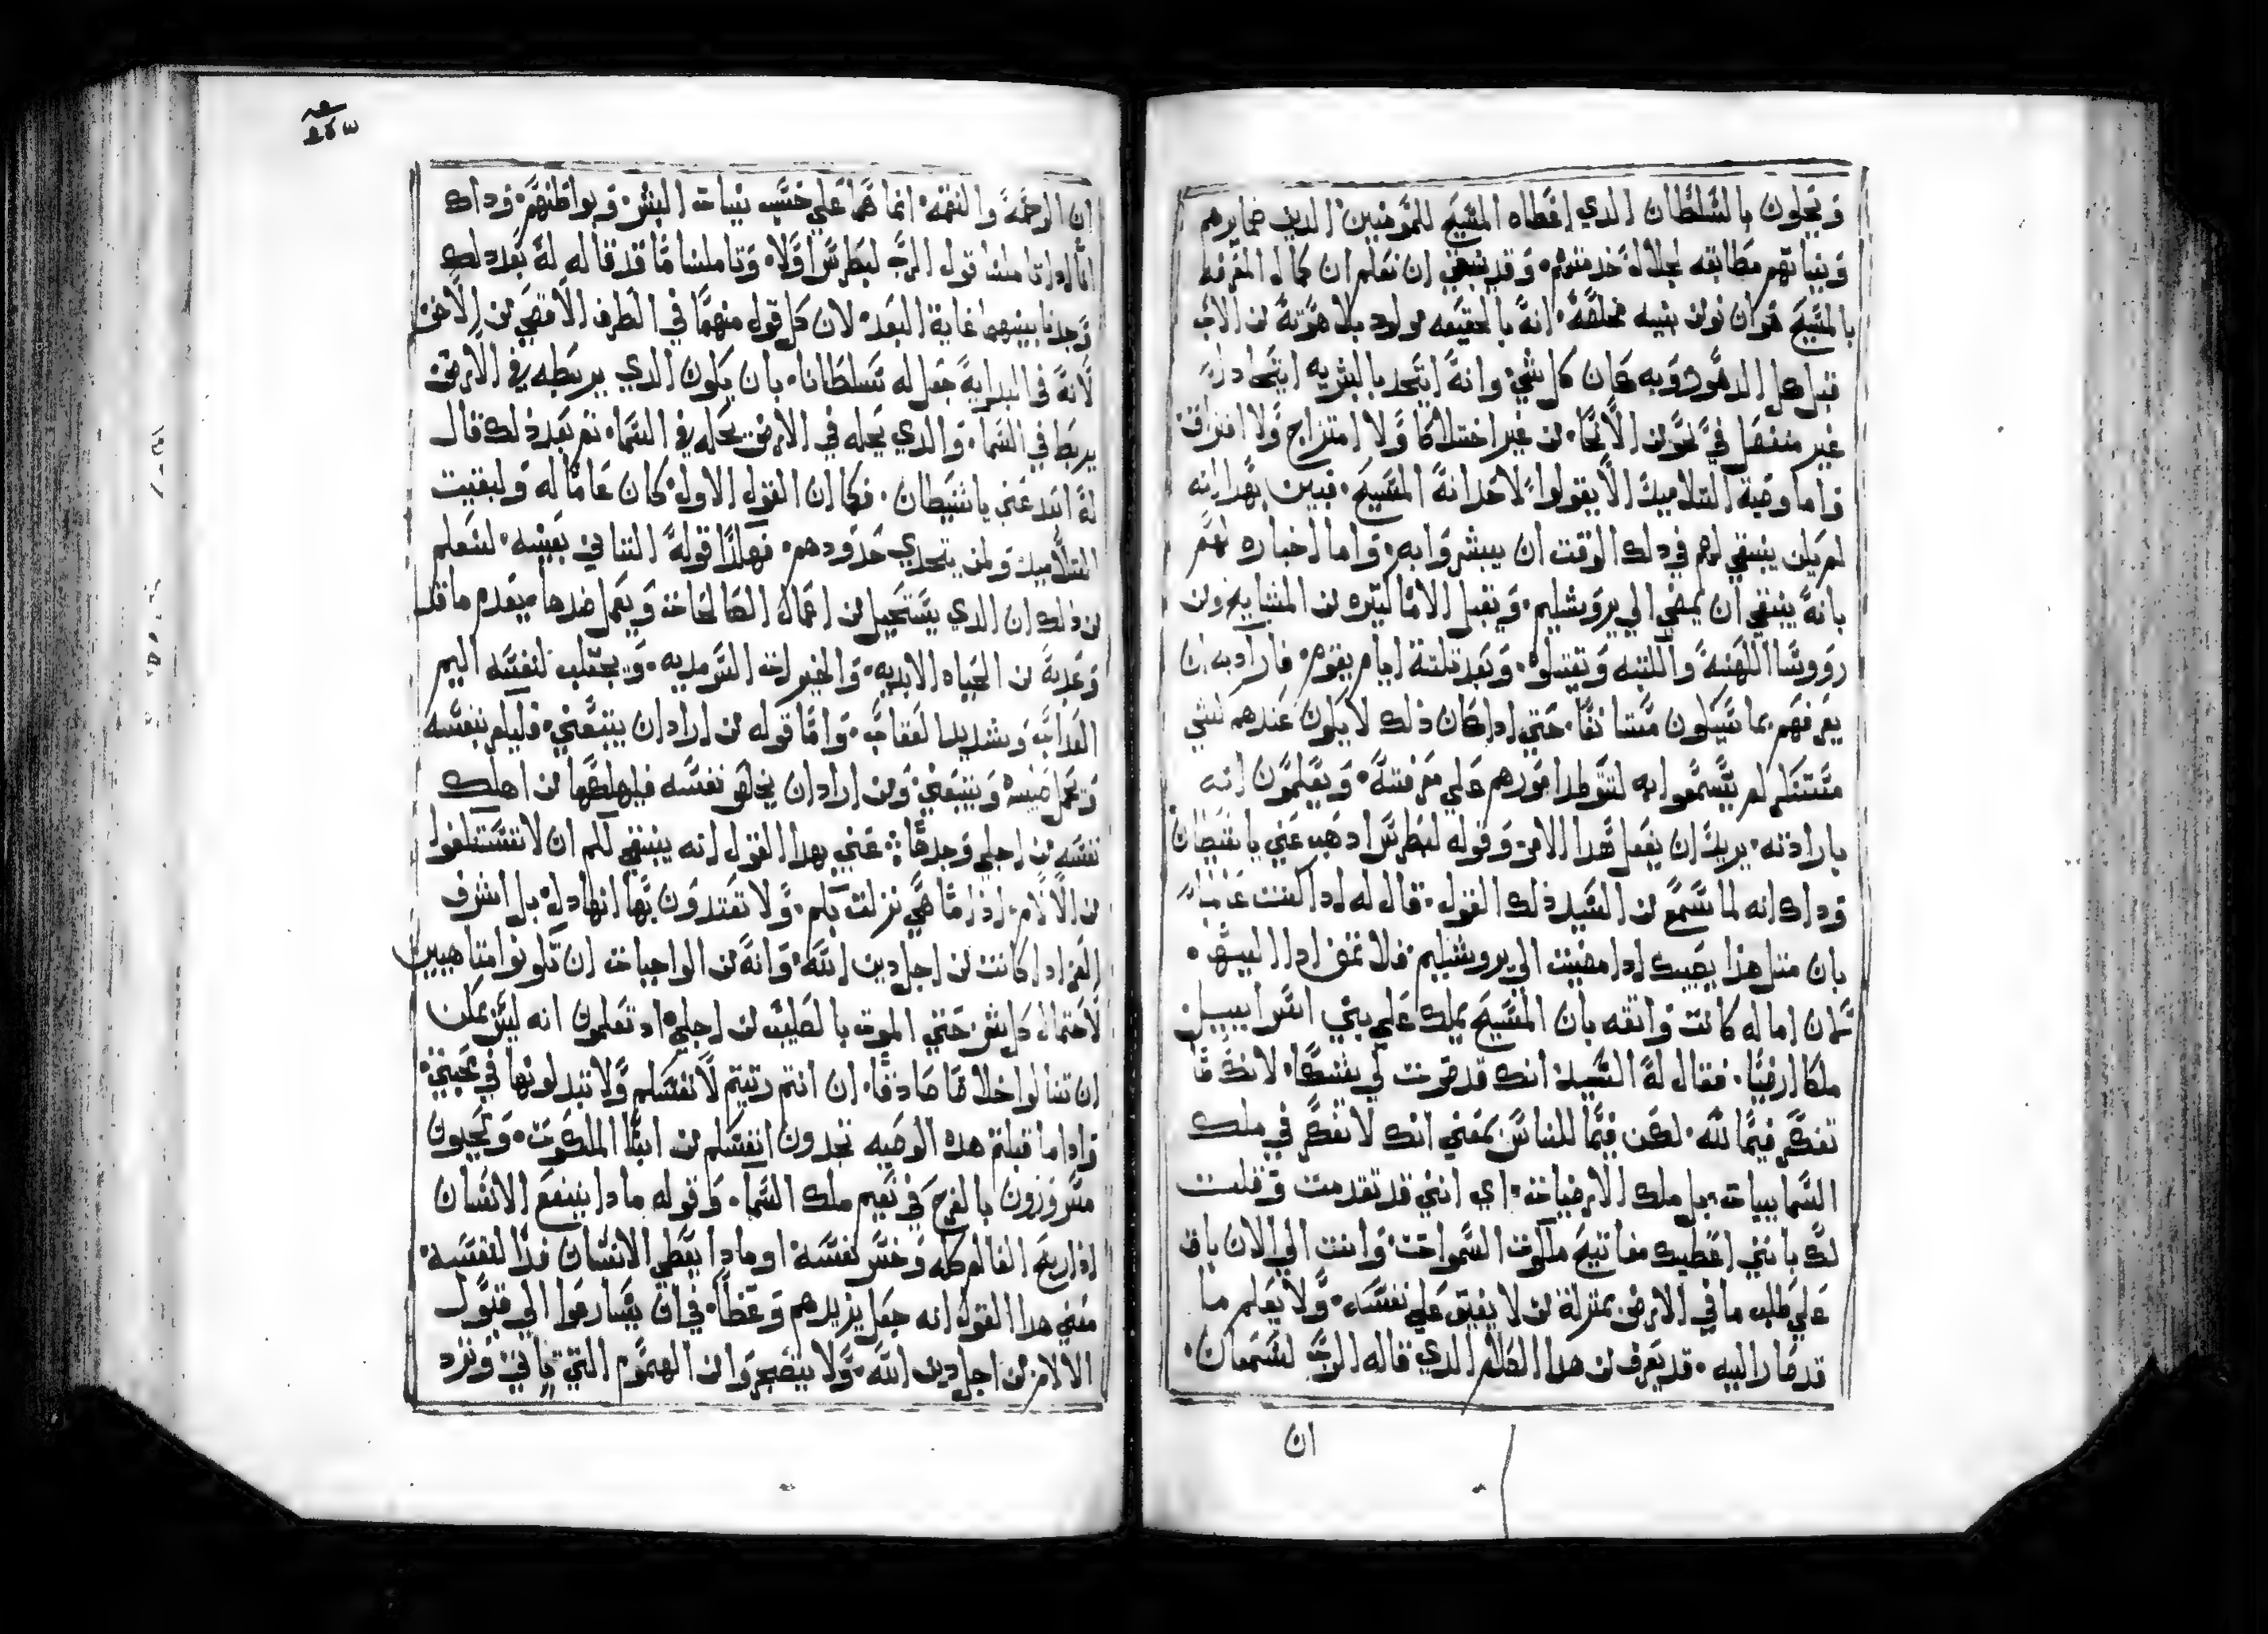 ويحلون بالسلطان الدي اعطاه المسيح للمومنين الدين ضمايرهم
ونياتهم مطابقه لجلالة خدمتهم. وقد ينبغي ان نعلم ان كمال المعرفه
بالمسيح هو ان نومن بنيه مخلصة. انه بالحقيقه مولود بلاهوته من الاب
قبل كل الدهور وبه كان كل شي. وانه اتحد بالبشريه اتحادا
غير منفصل في نحو من الانحا. من غير اختلاط ولا امتزاج ولا افتراق.
واما وصية التلاميد الا يقولوا لاحد انه المسيح. فبين بهدا انه
لم يكن ينبغي لهم في دلك الوقت ان يبشروا به. واما اخباره لهم
بانه ينبغي ان يمضي الي يروشليم. ويقبل الاما كتيره من المشايخ ومن
رووسا الكهنه والكتبه ويقتلوه. وبعد تلتة ايام يقوم. فاراد به ان
يعرفهم بما سيكون مستانفا. حتي اداكان ذلك لا يكون عندهم كشي
لم يسمعوا به امورهم علي معرفته. ويعلمون انه
بارادته. يريد ان يفعل هدا الامر. وقوله لبطرس ادهب عني يا شيطان
وداك انه لما سمع من السيد ذلك القول. قال له ادا كنت عالما
بان متل هذا يصيبك ادا مضيت الي يروشليم فلا تمض ادا اليها.
لان اماله كانت واتقه بان المسيح يملك علي بني اسراييل
ملكا ارضيا. فقال له السيد انك قد صرت لي شكا. لانك ما
تفكر فيما لله. لكن فيما للناس بمعني انك لا تفكر في ملك
السماييات بل ملك الارضيات. اي انني قد تقدمت وقلت
لك بانني اعطيك مفاتيح ملكوت السموات وانت الي الان باق
علي طلب ما في الارض بمنزلة من لا يفيق علي نفسه. ولا يعلم ما
قد صار اليه. قد يعرف من هدا الكلام الدي قاله الرب لسمعان.
ان
ان الرحمة والنقمه. انما هما علي حسب نيات البشر. وبواطنهم. وداك
انا اداتاملنا قول الرب لبطرس اولا. وتاملنا ما قد قاله له بعد دلك
وجدنا بينهما غاية البعد. لان كل قول منهما في الطرف الاقصي من الاخر
لانه في البداية جعل له سلطانا. بان يكون الدي يربطه في الارض
يربط في السما. والدي يحله في الارض يحله في السما. تم بعد ذلك قال
له ابعد عني يا شيطان. فكما ان القول الاول كان عاما له ولبقيت
التلاميد ولمن يتحدي حدودهم. فهكذا قوله التاني بعينه. لنعلم
من ذلك ان الدي يستحيل من اعمال الصالحات ويعمل ضدها يعدم ما قد
وعد به من الحياه الابديه. والخيرات السرمديه. ويجتلب لنفسه اليم
العداب وشديد العقاب. واما قوله من اراد ان يتبعني. فليكفر بنفسه
ويحمل صليبه ويتبعني. ومن اراد ان يخلص نفسه فليهلكها من اهلك
نفسه من اجلي وجدها: عني بهدا القول انه ينبغي لكم ان لا تستكفوا
من الالام. اذا ما هي نزلت بكم. ولا تعتدون بها انها دل. بل اشرف
العز ادا كانت من اجل دين الله. وانه من الواجبات ان تكونوا متاهبين
لاحتمال كل شي حتي الموت بالصليب من اجلي. اد تعلمون انه ليس يمكن
ان تنالوا خلاصا صادقا. ان انتم رتيتم لانفسكم ولا تبدلونها في محبتي.
واداما قبلتم هده الوصيه تجدون انفسكم من ابنا الملكوت. وتحيون
مسرورين بالفرح في نعيم ملك السما. وقوله مادا ينفع الانسان
اذا ربح العالم كله وخسر نفسه. او مادا يعطي الانسان فدا لنفسه.
معني هدا القول انه جعل يزيدهم وعظا. في ان يسارعوا الي قبول
الالام من اجل دين الله. ولا يضجروا من الهموم التي تاتي وترد